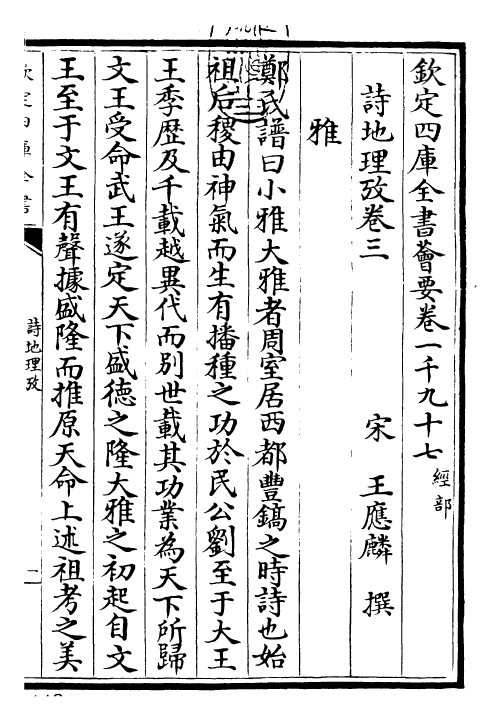 欽定四庫全書薈要卷一千九十七 經部
詩地理攷卷三
宋 王應麟 撰
雅
鄭氏譜曰小雅大雅者周室居西都豐鎬之時詩也始
祖后稷由神氣而生有播種之功於民公劉至于大王
王季歴及千載越異代而別世載其功業為天下所歸
文王受命武王遂定天下盛德之隆大雅之初起自文
王至于文王有聲據盛隆而推原天命上述祖考之美
欽定四庫全書
詩地理攷